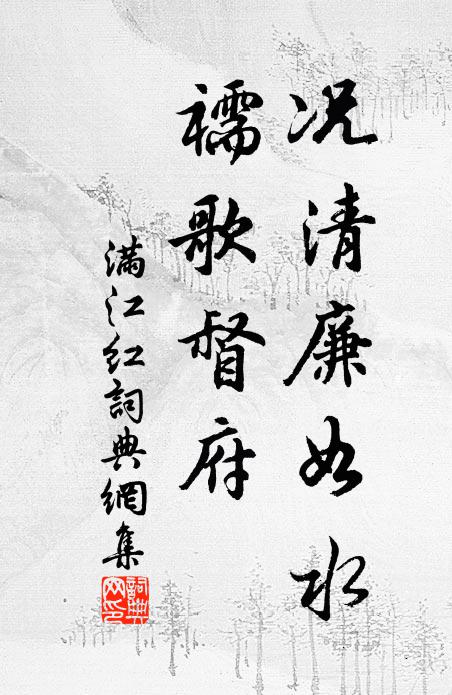 况清廉如水
襦歌督府
满江红詞典網集
詞典網印